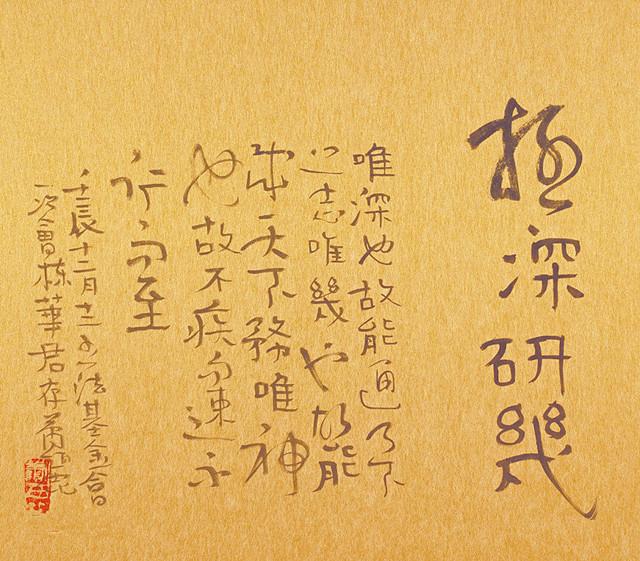 極深研幾
唯深也故能通天下
之志唯幾也故能
成天下務唯神
也故不疾而速不
行而至
壬辰十二月十二法基金會
一次會栋華君存